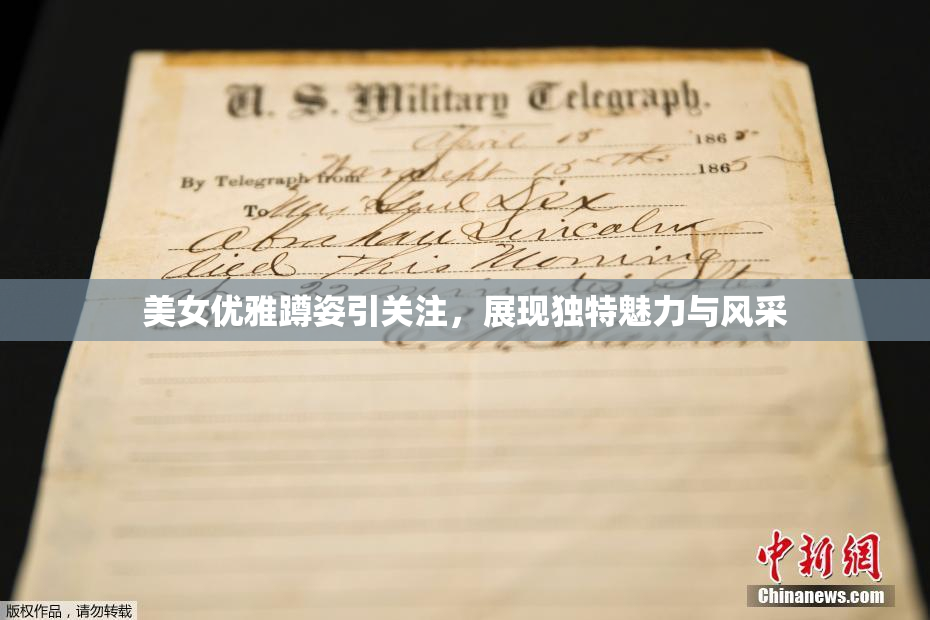 U. S. Military Telegraph.
April 15 1865
By Telegraph from War Dept 15th 1865
To Maj Genl Dix
Abraham Lincoln
died This Morning
22 minutes after
美女优雅蹲姿引关注，展现独特魅力与风采
E. M. Stanton
中新网
Chinanews.com
版权作品，请勿转载